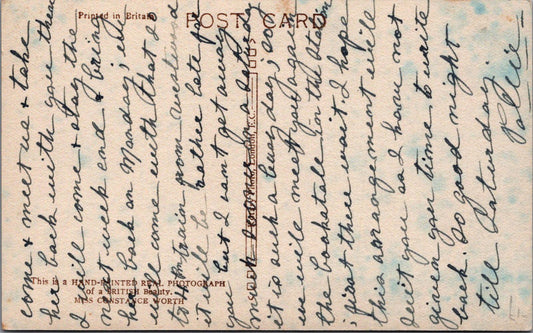 Printed in Britain
POST CARD
come & meet us & take
her back with you then
I will come & stay the
next week end & bring
her back on Monday,
will come with that
train from
it will be rather late for
you but I can't get away
much sooner for a Saturday
it is such a busy day, so
will meet you again
the bookstall in the station
just there wait. I hope
this arrangement will
suit you as I have not
given you time to write
back. So good night
till Saturday.
Pollie
London, E.C.
This is a HAND-PAINTED REAL PHOTOGRAPH
of a BRITISH Beauty.
MISS CONSTANCE WORTH